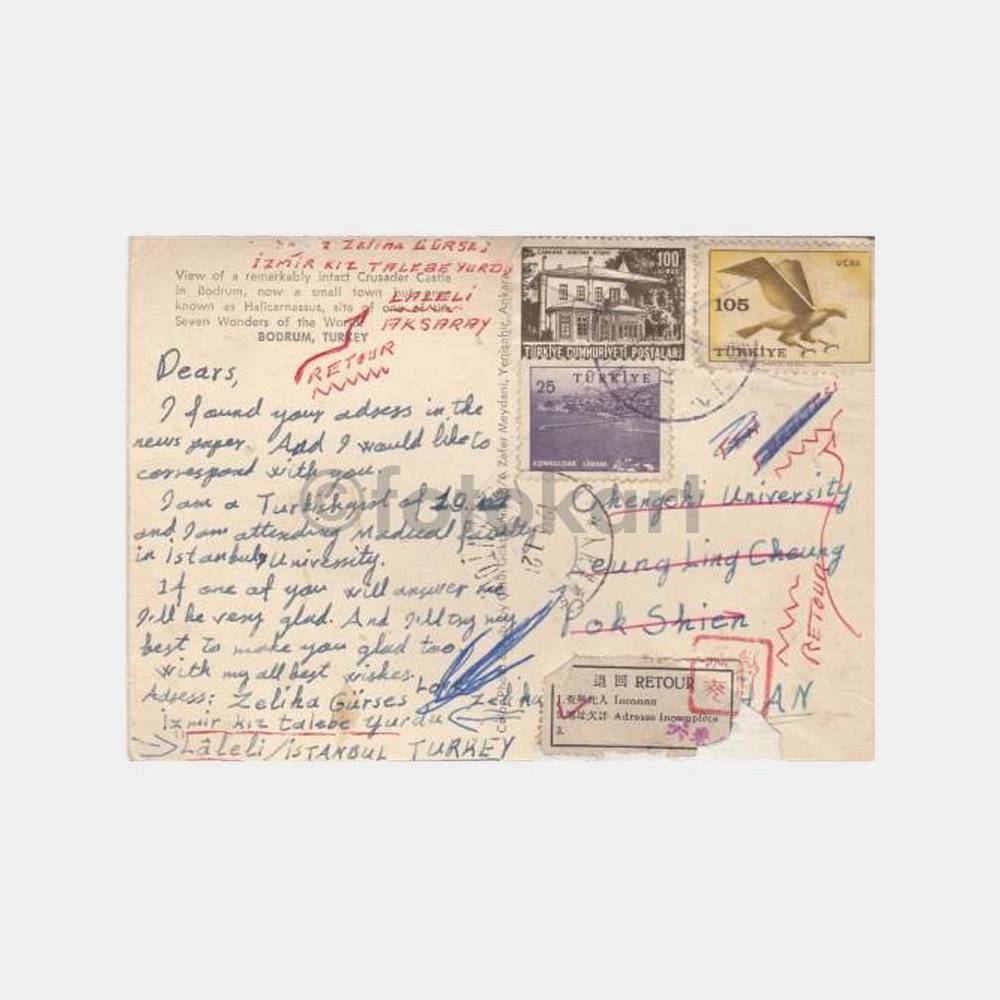 Zeliha GÜRSES
İZMİR KIZ TALEBE YURDU
LALELİ
AKSARAY
RETOUR
View of a remarkably intact Crusader Castle
in Bodrum, now a small town but once
known as Halicarnassus, site of one of the
Seven Wonders of the World
BODRUM, TURKEY
Dears,
I found your adsess in the
news paper. And I would like to
correspond with you.
I am a Turkish girl of 19.
and I am attending Medical faculty
in Istanbul University.
If one of you will answer me
I'll be very glad. And I'll try my
best to make you glad too.
with my all best wishes.
Adsess: Zeliha Gürses
İzmir kız talebe yurdu
Lâleli / İSTANBUL TURKEY
Zafer Meydani, Yenişehir, Ankara
100
TÜRKİYE CUMHURİYETİ POSTALARI
UÇAK
105
TÜRKİYE
25
TÜRKİYE
ZONGULDAK LİMANI
Chengchi University
Yeung Ling Cheung
Pok Shien
RETOUR
Zeliha
HAN
退回 RETOUR
1. Inconnu
2. Adresse Incomplete
3.
©fotokart